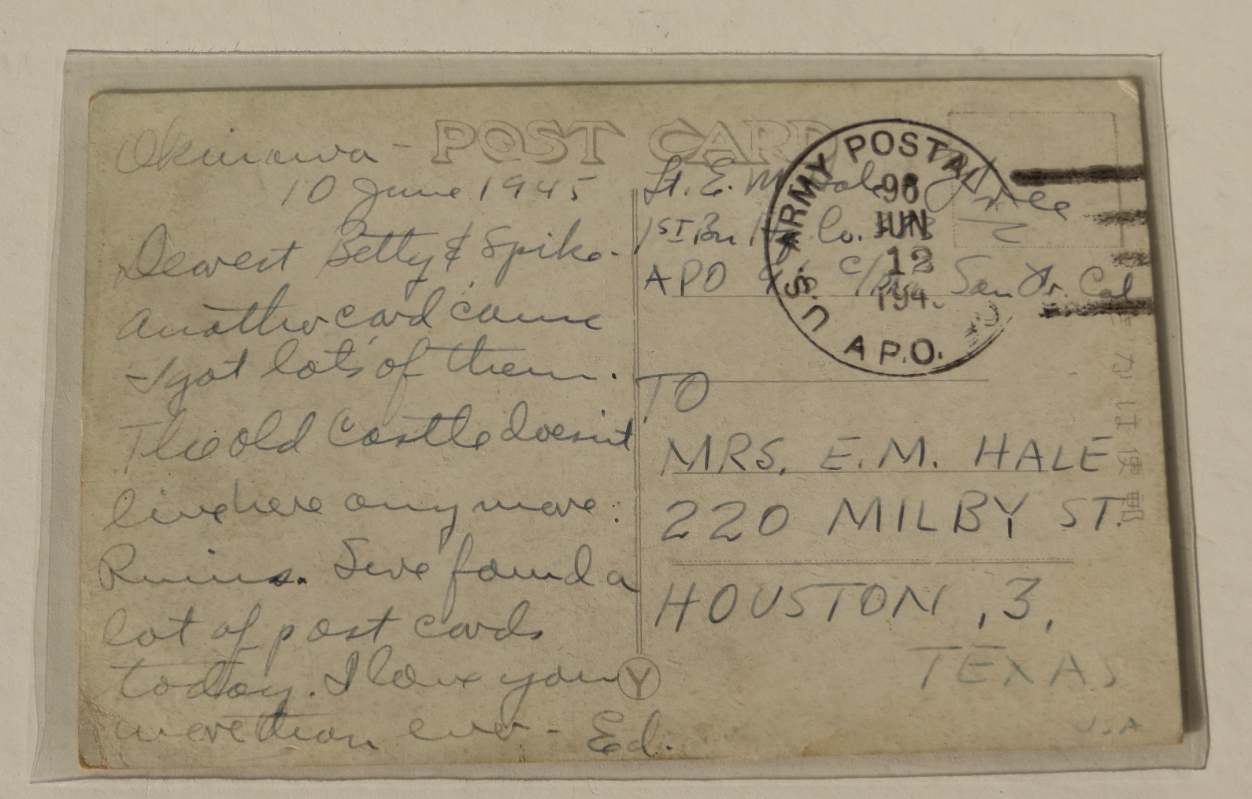 POST CARD
Okinawa -
10 June 1945
Dearest Betty & Spike -
Another card cause
I got lots of them.
The old Castle doesn't
live here any more.
Ruins. I've found a
lot of post cards
today. I love you
more than ever - Ed.
Lt. E. M. Hale
1ST Bn Hq. Co.
APO 96 c/o PM San Fr. Cal
Free
U.S. ARMY POSTAL
96
JUN
12
194
A.P.O.
TO
MRS. E.M. HALE
220 MILBY ST.
HOUSTON, 3,
TEXAS
USA
Y
きがは便郵